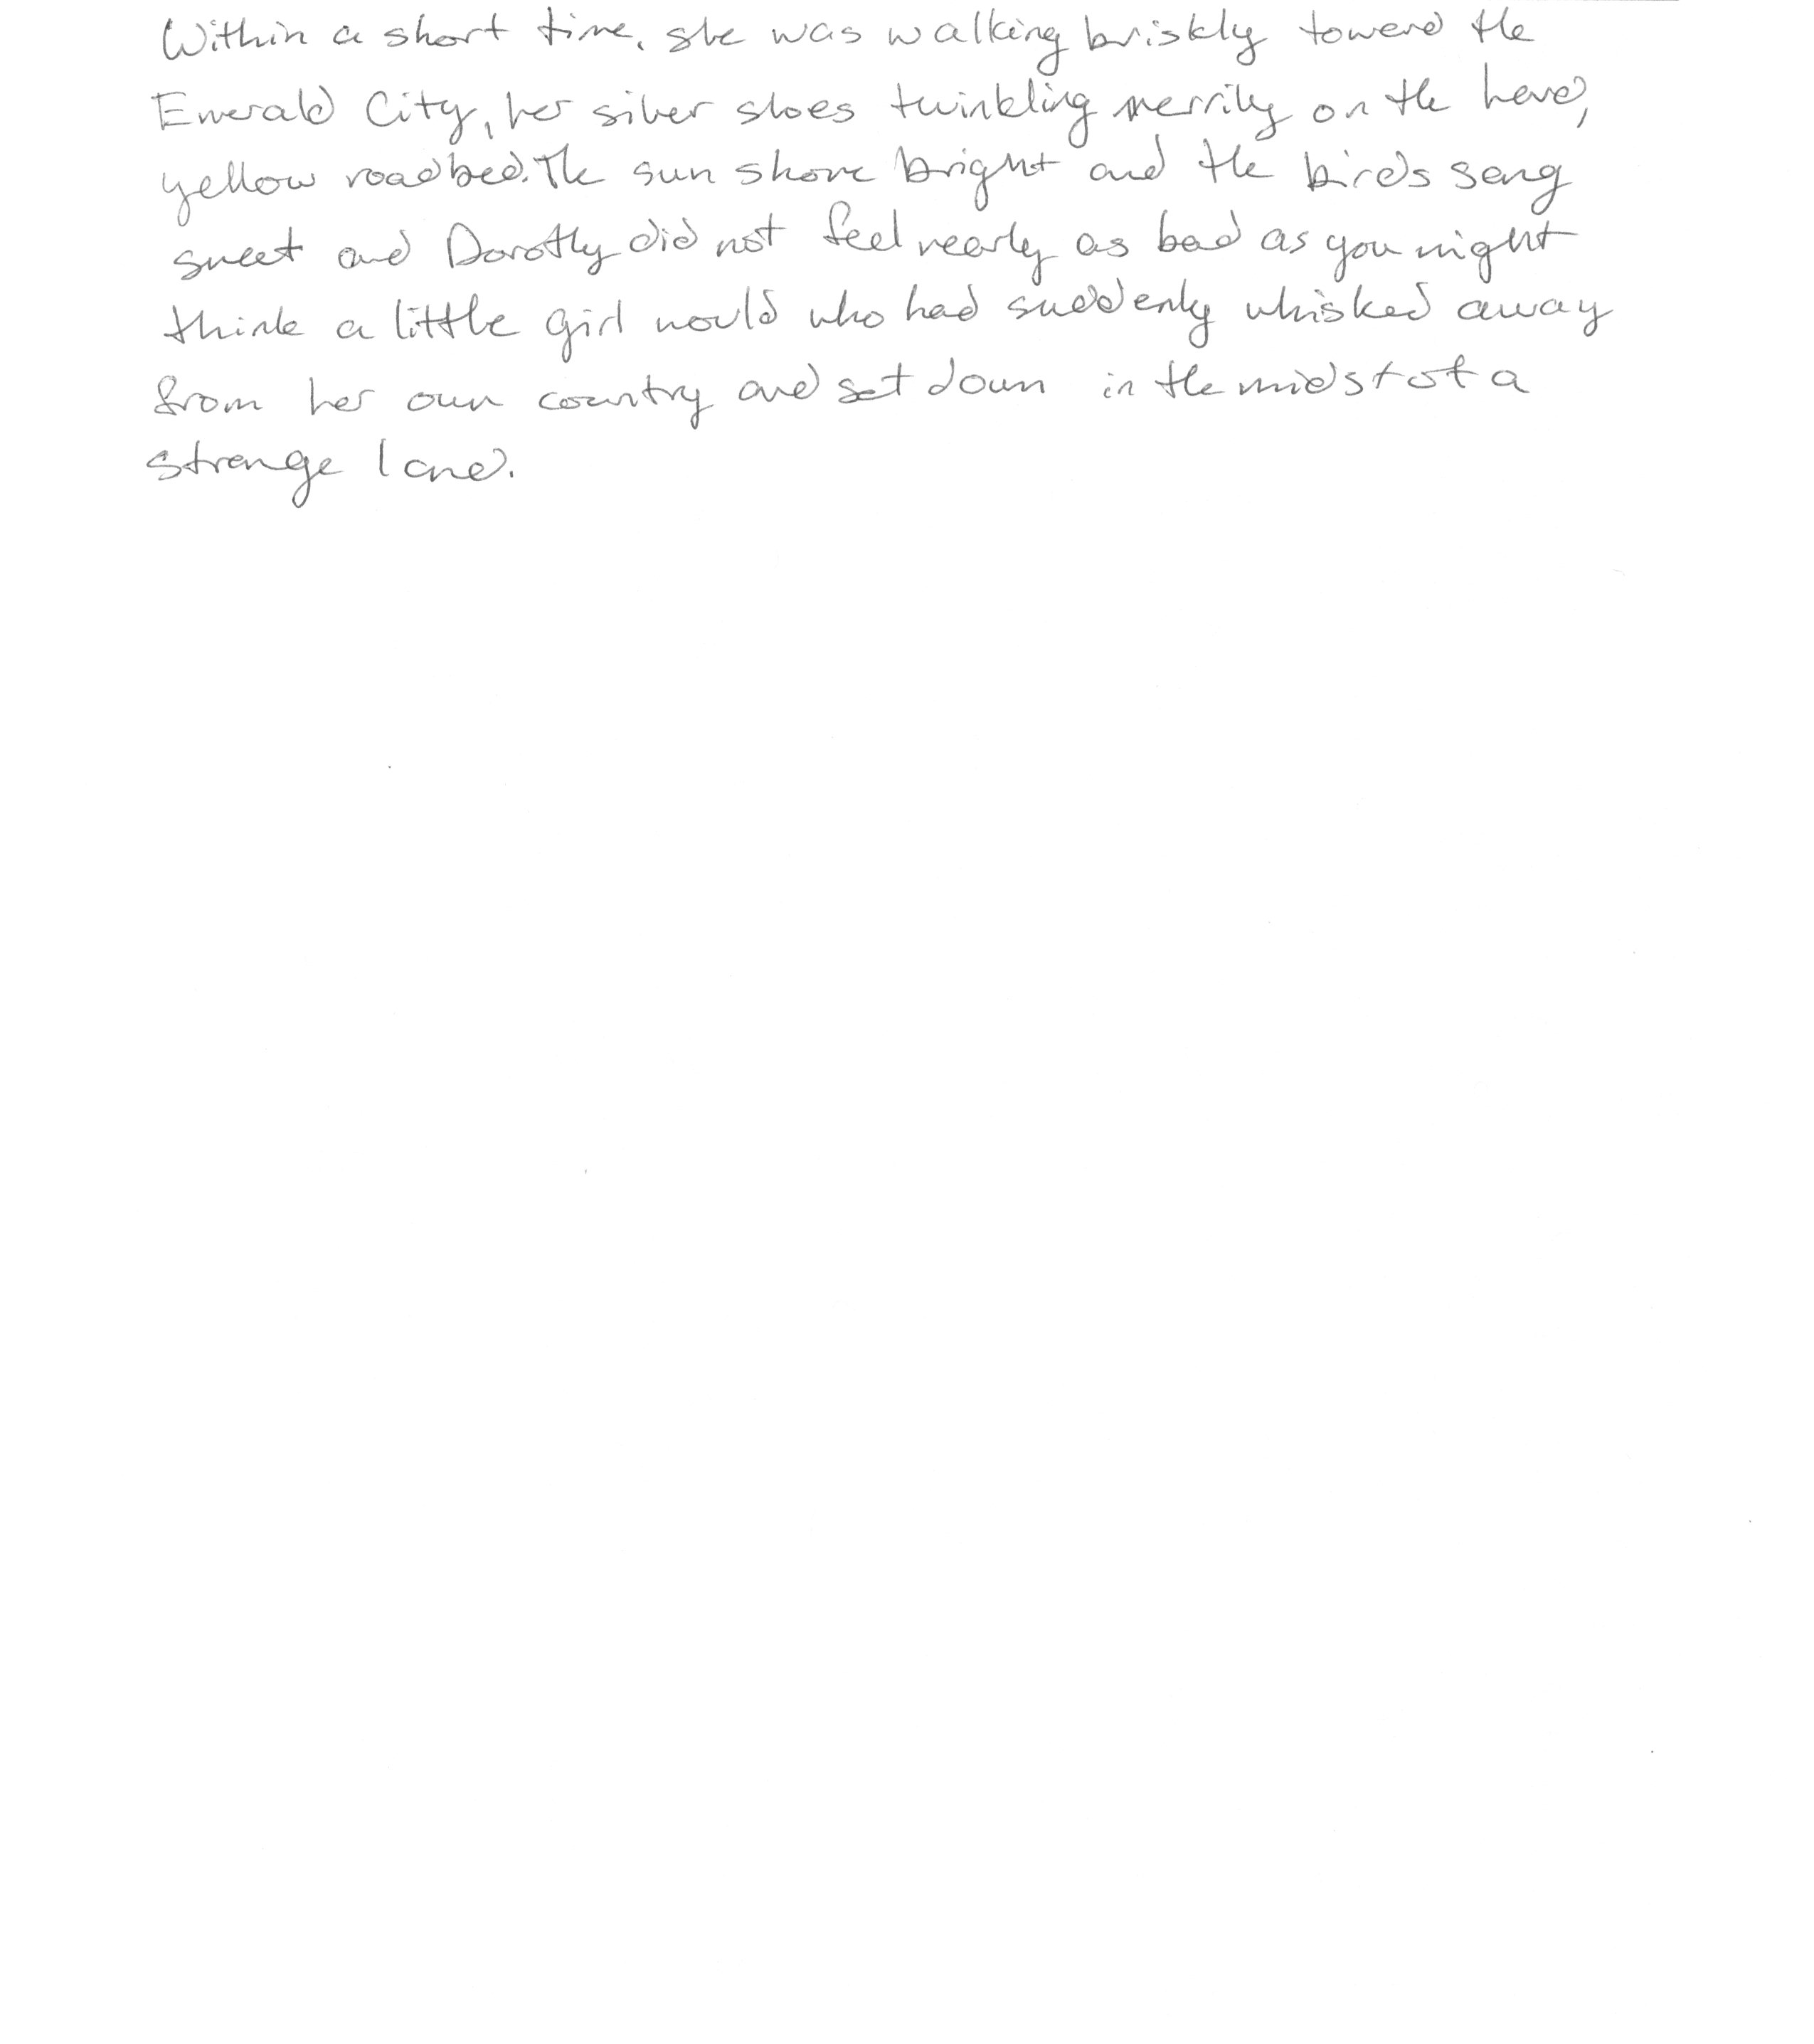 Within a short time, she was walking briskly toward the
Emerald City, her silver shoes twinkling merrily on the hard,
yellow roadbed. The sun shone bright and the birds sang
sweet and Dorothy did not feel nearly as bad as you might
think a little girl would who had suddenly whisked away
from her own country and set down in the midst of a
strange land.